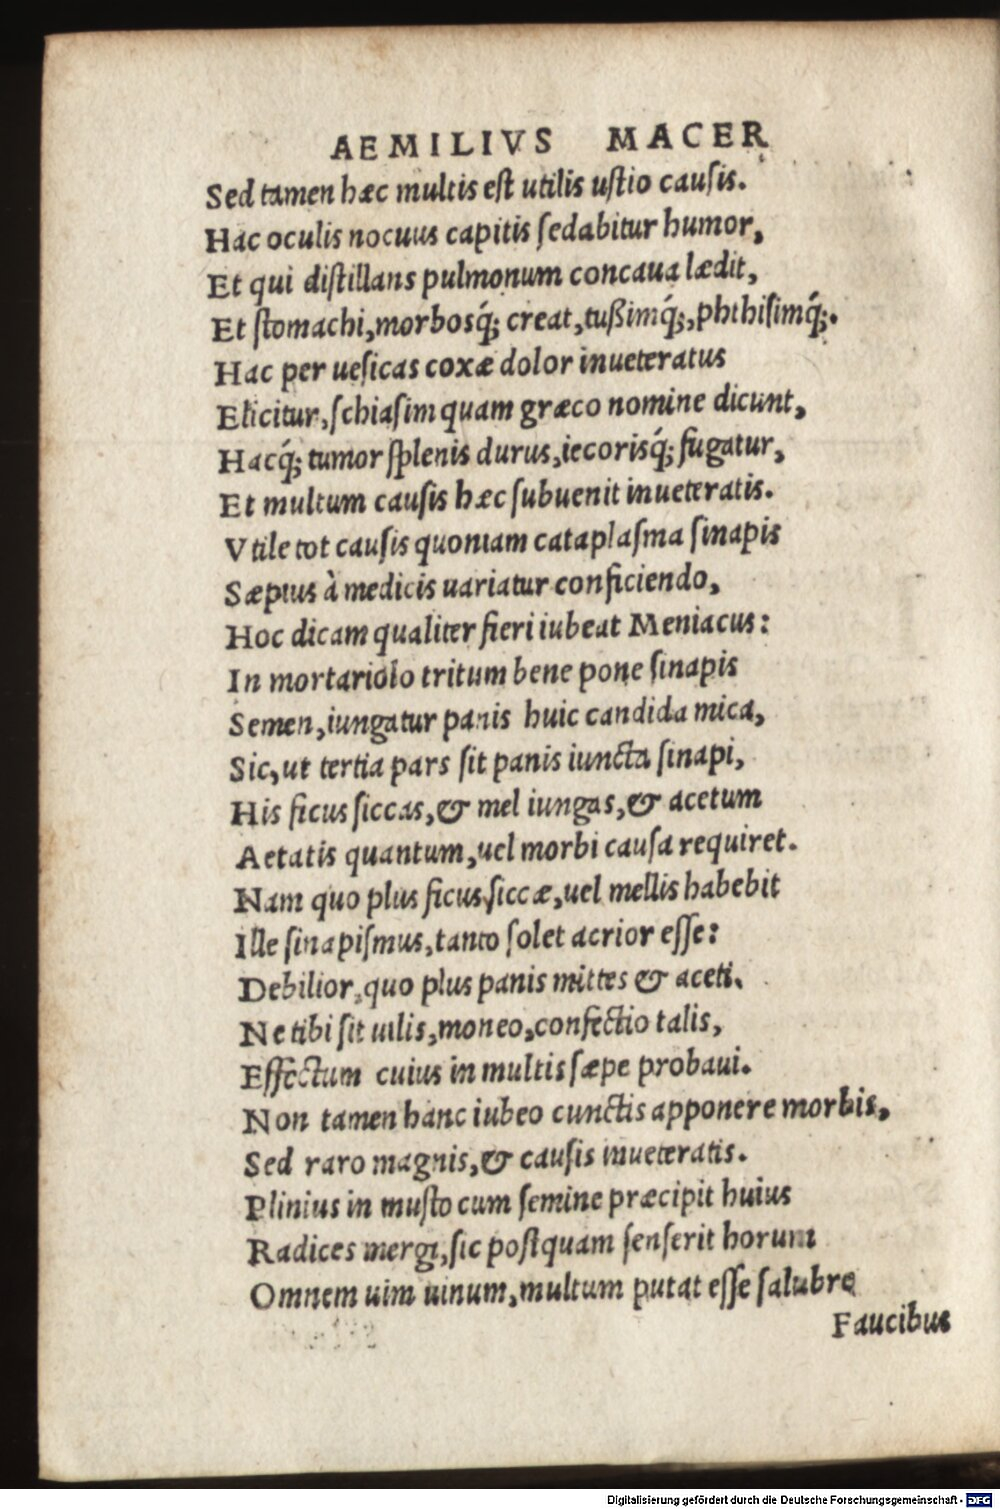 AEMILIVS MACER
Sed tamen hæc multis est utilis ustio causis.
Hac oculis nocuus capitis sedabitur humor,
Et qui distillans pulmonum concaua lædit,
Et stomachi, morbosq́; creat, tußimq́;, phthisimq́;.
Hac per uesicas coxæ dolor inueteratus
Elicitur, schiasim quam græco nomine dicunt,
Hacq́; tumor splenis durus, iecorisq́; fugatur,
Et multum causis hæc subuenit inueteratis.
Vtile tot causis quoniam cataplasma sinapis
Sæpius à medicis uariatur conficiendo,
Hoc dicam qualiter fieri iubeat Meniacus:
In mortariolo tritum bene pone sinapis
Semen, iungatur panis huic candida mica,
Sic, ut tertia pars sit panis iuncta sinapi,
His ficus siccas, & mel iungas, & acetum
Aetatis quantum, uel morbi causa requiret.
Nam quo plus ficus siccæ, uel mellis habebit
Ille sinapismus, tanto solet acrior esse:
Debilior, quo plus panis mittes & aceti.
Ne tibi sit uilis, moneo, confectio talis,
Effectum cuius in multis sæpe probaui.
Non tamen hanc iubeo cunctis apponere morbis,
Sed raro magnis, & causis inueteratis.
Plinius in musto cum semine præcipit huius
Radices mergi, sic postquam senserit horum
Omnem uim uinum, multum putat esse salubre
Faucibus
Digitalisierung gefördert durch die Deutsche Forschungsgemeinschaft - DFG